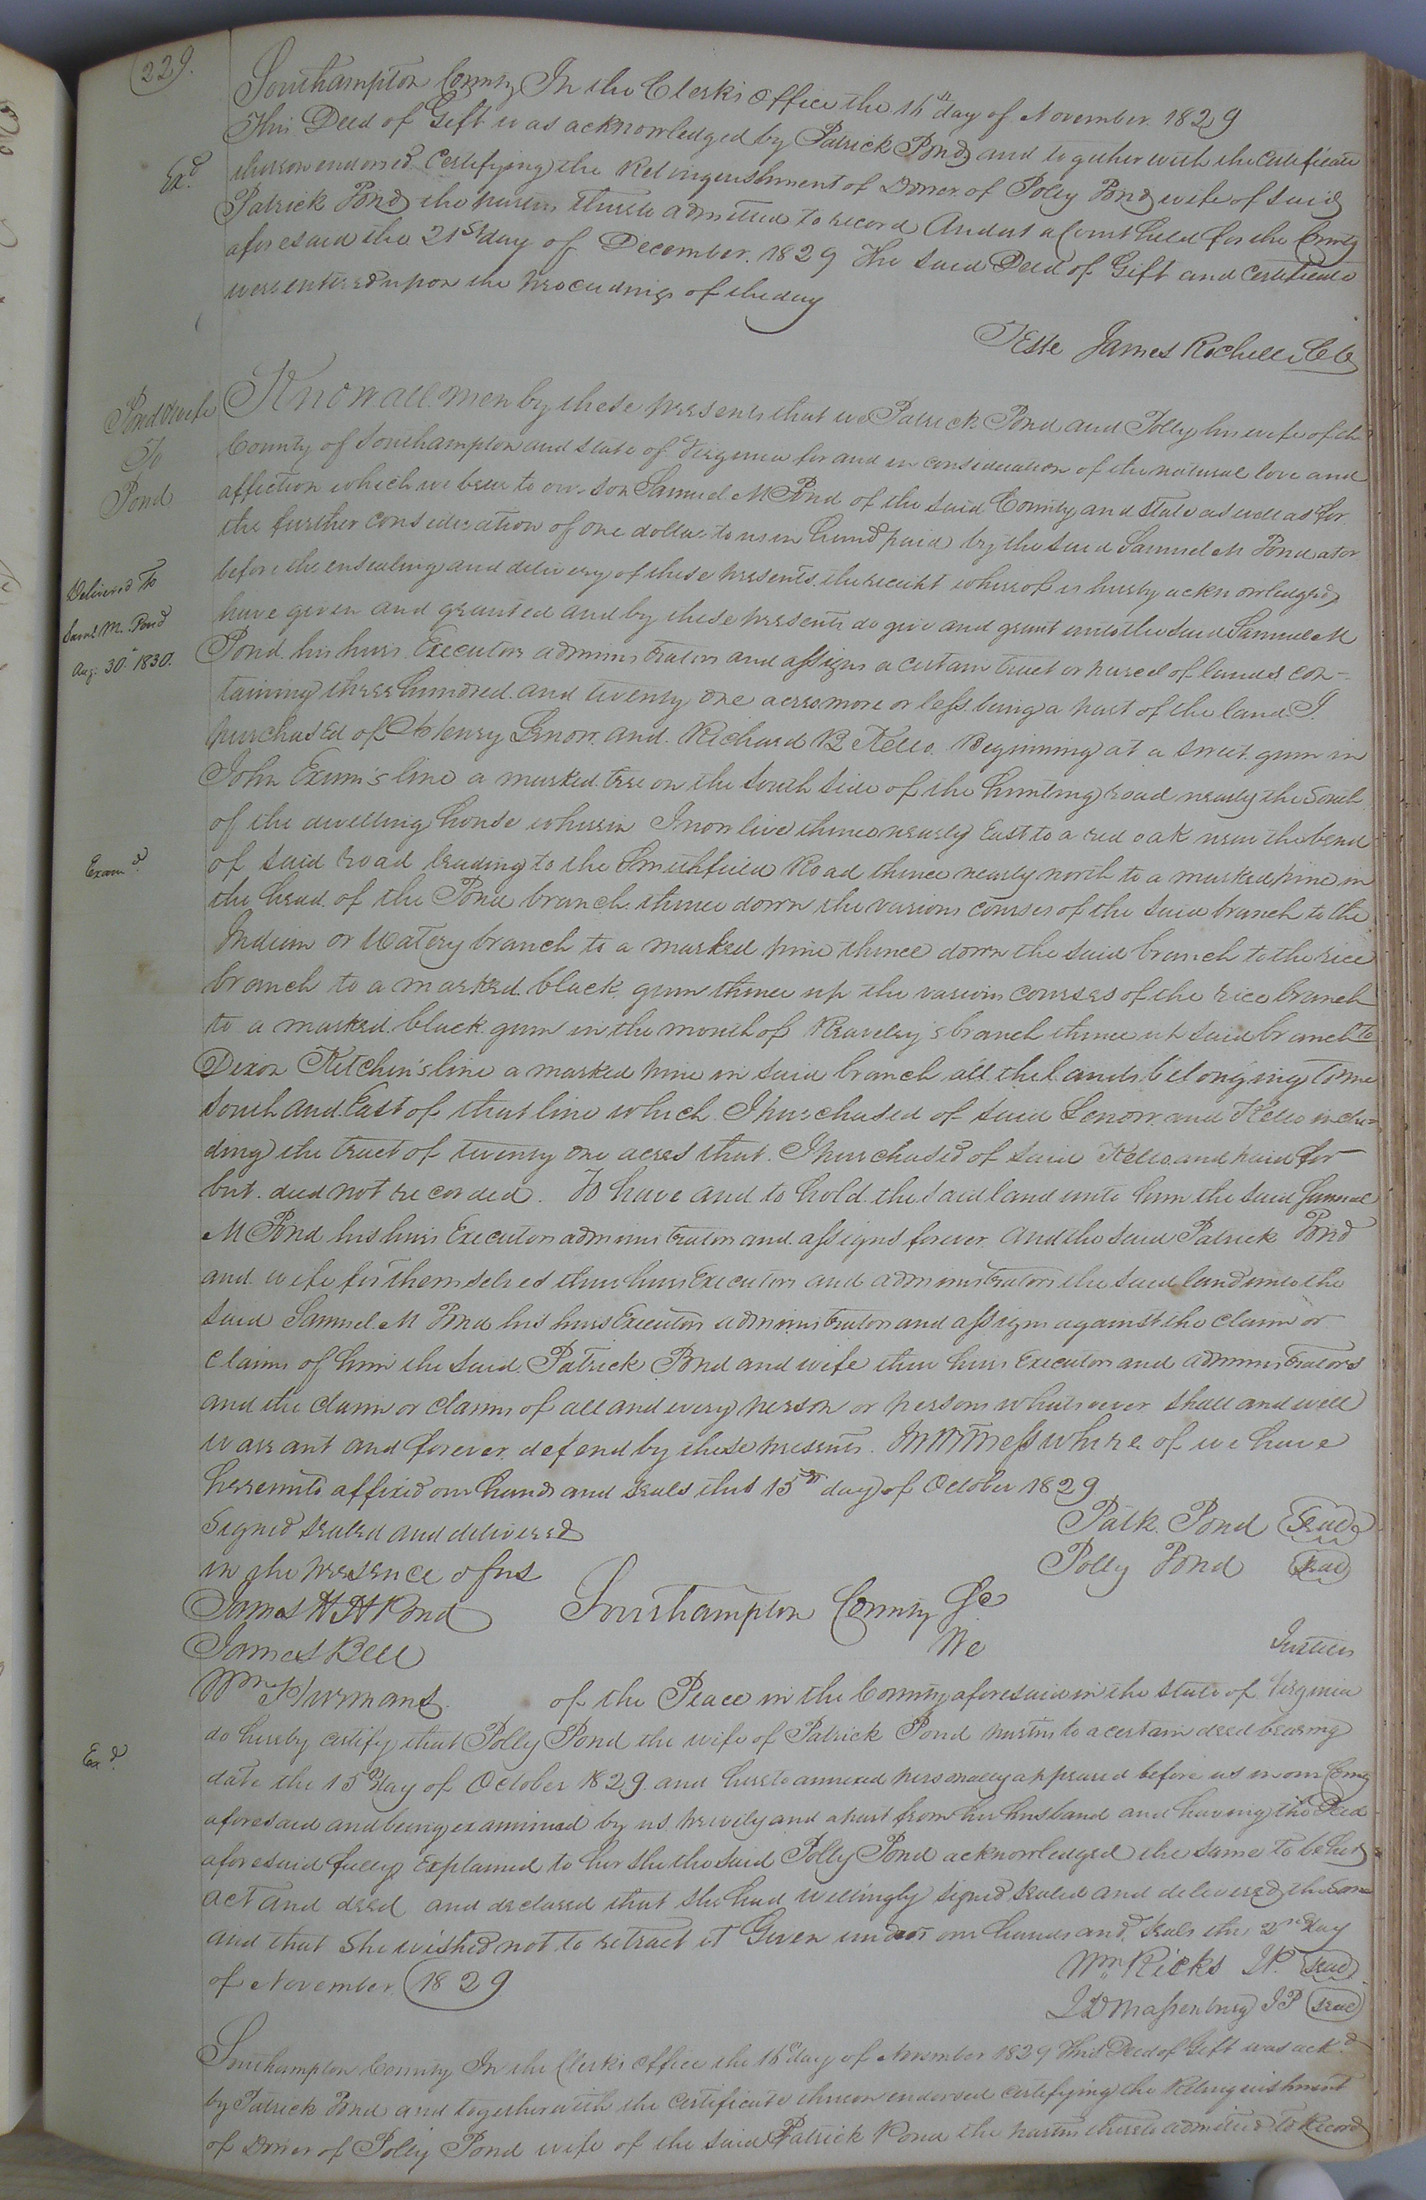 229.
Southampton County In the Clerk's Office the 16th day of November 1829
This Deed of Gift was acknowledged by Patrick Pond and together with the certificate
Exd
thereon endorsed certifying the Relinquishment of Dower of Polly Pond wife of said
Patrick Pond the parties thereto admitted to record And at a Court held for the County
aforesaid the 21st day of December 1829 The said Deed of Gift and Certificate
were entered upon the proceedings of the day
Teste James Rochelle CC
Pond & wife
To
Pond
Know all men by these presents that we Patrick Pond and Polly his wife of the
County of Southampton and State of Virginia for and in consideration of the natural love and
affection which we bear to our son Samuel M Pond of the said County and State as well as for
the further consideration of one dollar to us in hand paid by the said Samuel M Pond at or
Delivered To
Saml M. Pond
Aug: 30th 1830.
before the ensealing and delivery of these presents the receipt whereof is hereby acknowledged
have given and granted and by these presents do give and grant unto the said Samuel M
Pond his heirs Executors administrators and assigns a certain tract or parcel of lands con-
taining three hundred and twenty one acres more or less being a part of the land I
purchased of Henry Lenow and Richard B Kello. Beginning at a sweet gum in
John Exum's line a marked tree on the south side of the hunting road nearly the South
of the dwelling house wherein I now live thence nearly East to a red oak near the bend
Examd
of said road leading to the Smithfield Road thence nearly north to a marked pine in
the head of the Pond branch thence down the various courses of the said branch to the
Indian or Watery branch to a marked pine thence down the said branch to the rice
branch to a marked black gum thence up the various courses of the rice branch
to a marked black gum in the mouth of branch thence up said branch to
Dixon Kitchin's line a marked pine in said branch all the lands belonging to me
South and East of that line which I purchased of said Lenow and Kello inclu-
ding the tract of twenty one acres that I purchased of said Kello and paid for
but deed not recorded. To have and to hold the said land unto him the said Samuel
M Pond his heirs Executors administrators and assigns forever And the said Patrick Pond
and wife for themselves their heirs Executors and administrators the said land unto the
said Samuel M Pond his heirs Executors administrators and assigns against the claim or
claims of him the said Patrick Pond and wife their heirs Executors and administrators
and the claim or claims of all and every person or persons whatsoever shall and will
warrant and forever defend by these presents. In Witness whereof we have
hereunto affixed our hands and seals this 15th day of October 1829
Signed sealed and delivered
in the presence of us
Patk. Pond Seal
Polly Pond Seal
James H H Pond
James Bell
Wm
Southampton County Sc
We Justices
of the Peace in the County aforesaid in the state of Virginia
do hereby certify that Polly Pond the wife of Patrick Pond parties to a certain deed bearing
Exd
date the 15th day of October 1829 and hereto annexed personally appeared before us in our County
aforesaid and being examined by us privily and apart from her husband and having the Deed
aforesaid fully Explained to her she the said Polly Pond acknowledged the same to be her
act and deed and declared that she had willingly signed sealed and delivered the same
and that she wished not to retract it Given under our hands and seals the 2nd day
of November 1829
Wm Ricks JP. Seal
Massenburg JP Seal
Southampton County In the Clerk's Office the 16th day of November 1829 This Deed of Gift was ackd
by Patrick Pond and together with the certificate thereon endorsed certifying the Relinquishment
of Dower of Polly Pond wife of the said Patrick Pond the parties thereto admitted to Record